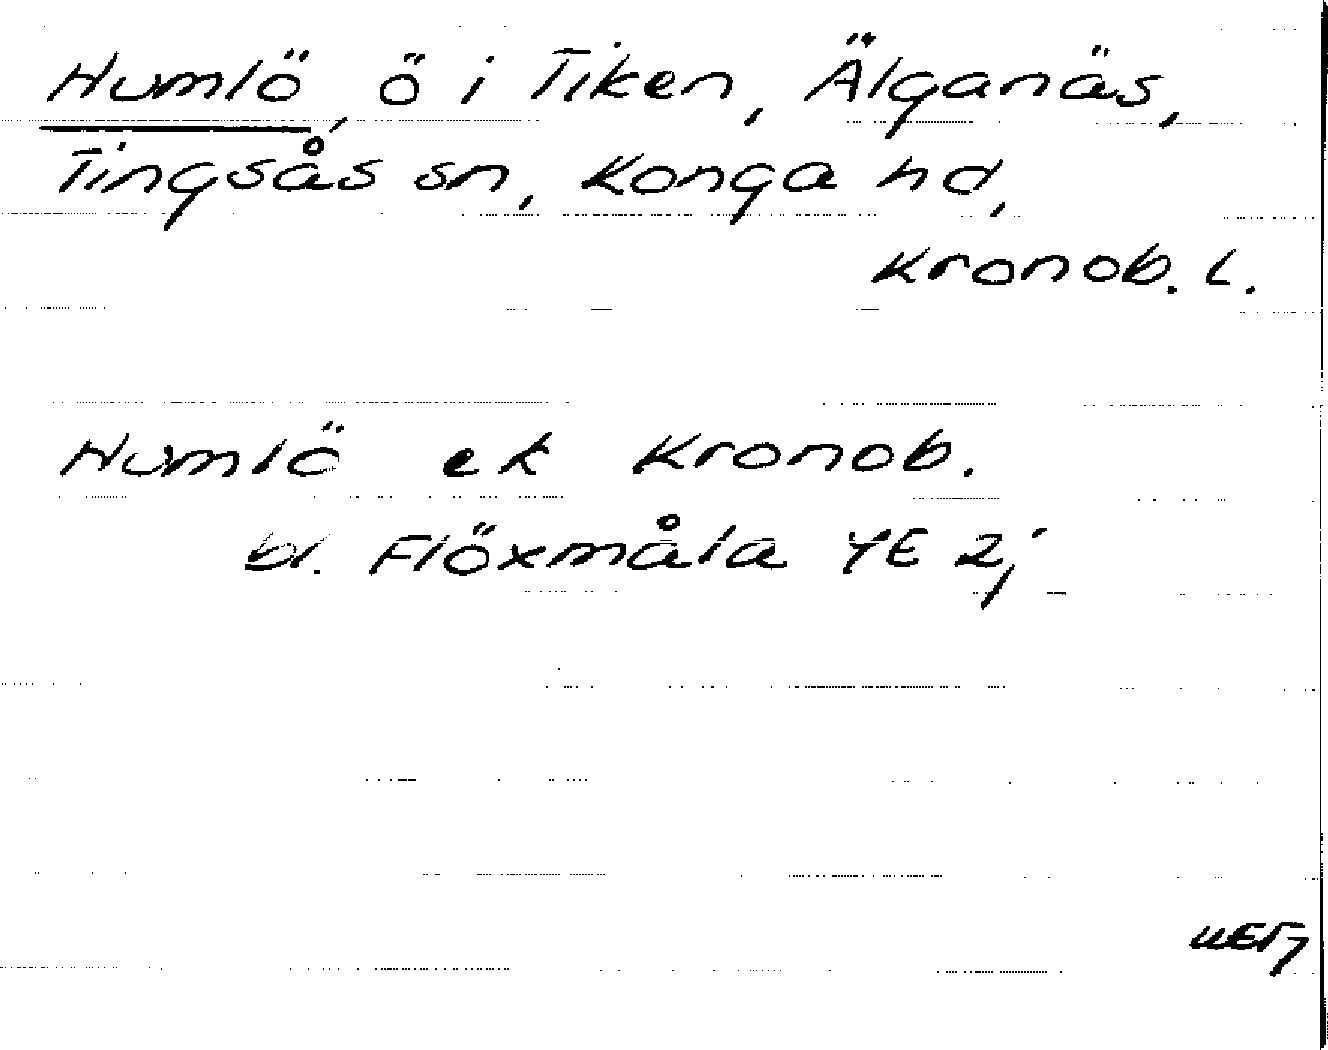 Humlö, ö i Tiken, Älganäs,
Tingsås sn, Konga hd,
Kronob. l.
Humlö ek Kronob.
bl. Flöxmåla YE 2;